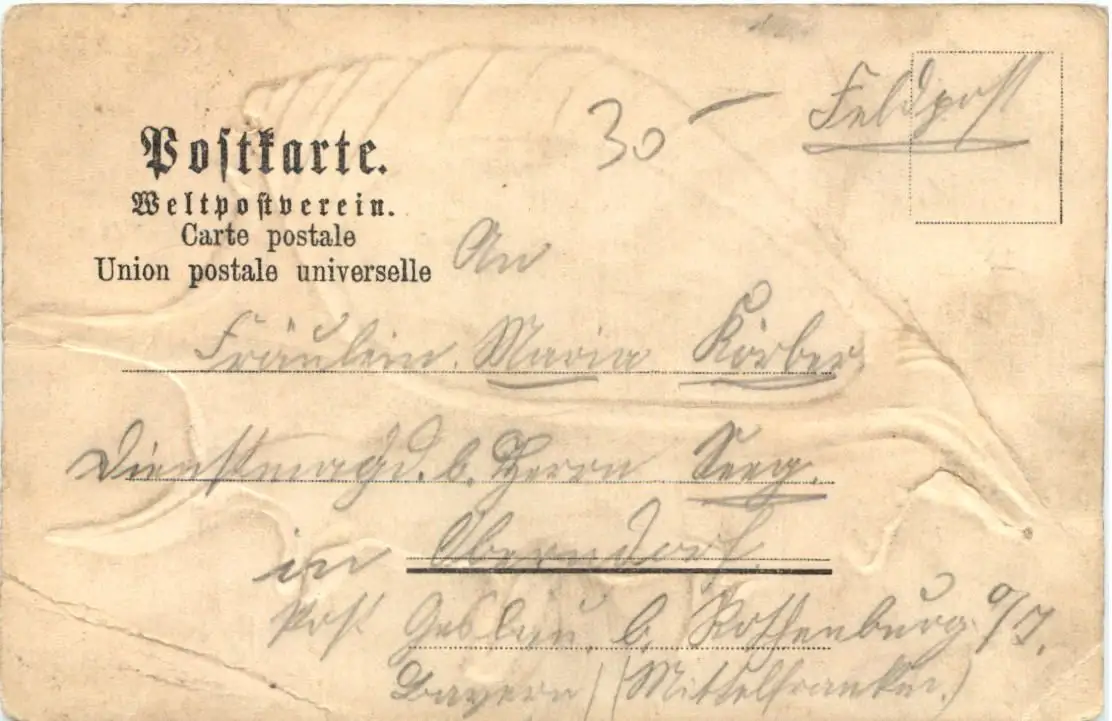 Feldpost
30 –
Postkarte.
Weltpostverein.
Carte postale
Union postale universelle
An
Fräulein. Maria Körber.
Dienstmagd. b. Herrn Seeg.
in Oberndorf.
Post Geslau b. Rothenburg o/T.
Bayern (Mittelfranken.)